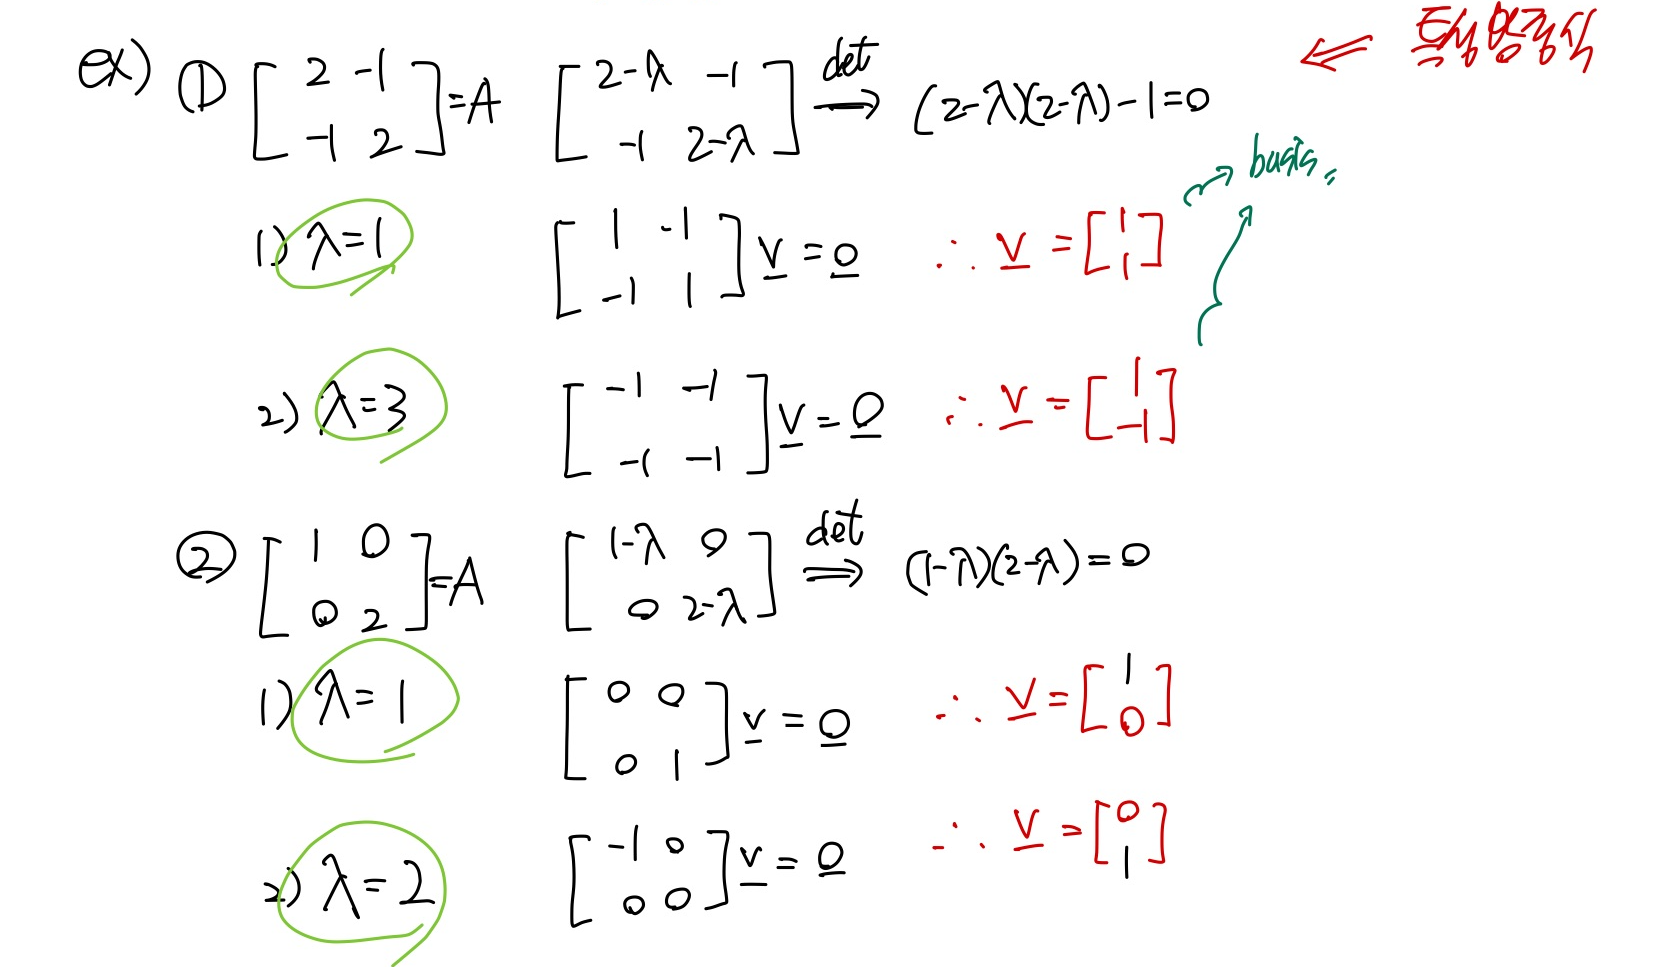 ex) ① [2 -1; -1 2] = A [2-λ -1; -1 2-λ] det → (2-λ)(2-λ)-1=0 ⇐ 특성방정식
1) λ=1 [1 -1; -1 1] v = 0 ∴ v = [1; 1] → basis
2) λ=3 [-1 -1; -1 -1] v = 0 ∴ v = [1; -1]
② [1 0; 0 2] = A [1-λ 0; 0 2-λ] det ⇒ (1-λ)(2-λ)=0
1) λ=1 [0 0; 0 1] v = 0 ∴ v = [1; 0]
2) λ=2 [-1 0; 0 0] v = 0 ∴ v = [0; 1]